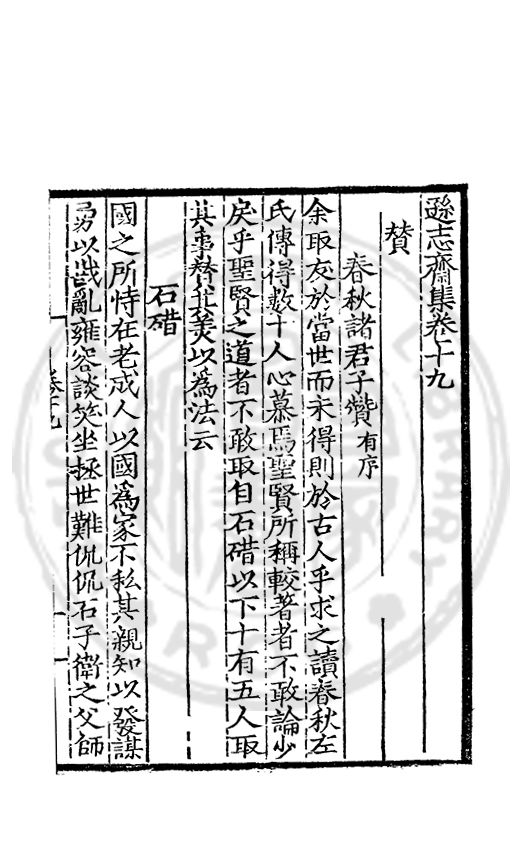 遜志齋集卷十九
贊
春秋諸君子贊有序
余取友於當世而未得則於古人乎求之讀春秋左
氏傳得數十人心慕焉聖賢所稱較著者不敢論少
戾乎聖賢之道者不敢取自石碏以下十有五人取
其事贊其美以為法云
石碏
國之所恃在老成人以國為家不私其親知以發謀
勇以戡亂雍容談笑坐拯世難侃侃石子衛之父師
卷十九